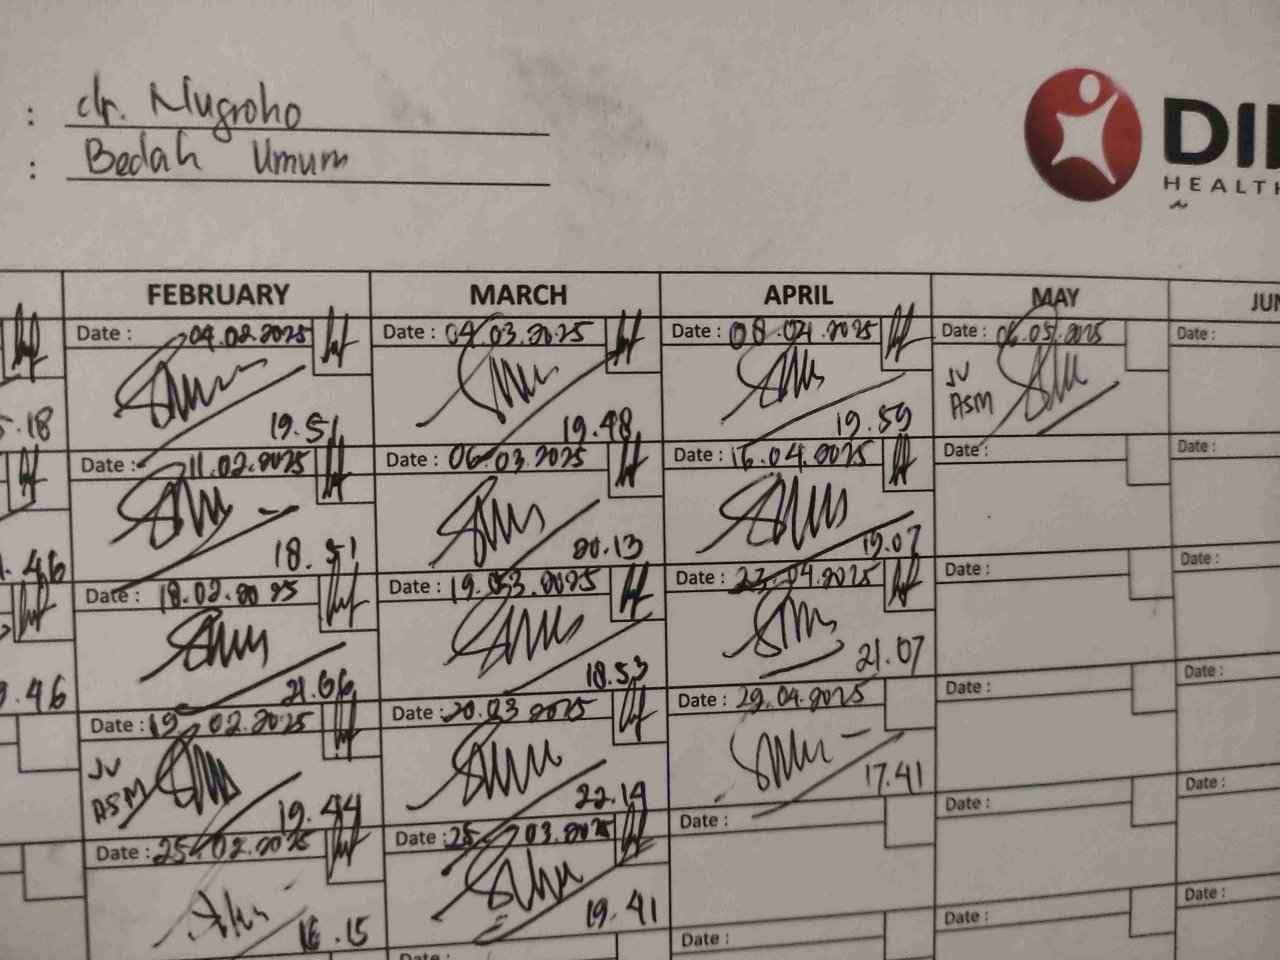 : dr. Nugroho
: Bedah Umum
HEALTH
FEBRUARY MARCH APRIL MAY
Date : 04.02.2025 Date : 04.03.2025 Date : 08.04.2025 Date : 06.05.2025 Date :
JV
ASM
.18 19.51 19.48 19.59
Date : 11.02.2025 Date : 06.03.2025 Date : 16.04.2025 Date : Date :
.46 18.51 20.13 19.07
Date : 18.02.2025 Date : 19.03.2025 Date : 23.04.2025 Date : Date :
.46 21.06 18.53 21.07
Date : 19.02.2025 Date : 20.03 2025 Date : 29.04.2025 Date : Date :
JV
ASM
19.44 22.14 17.41
Date : 25.02.2025 Date : 25.03.2025 Date : Date : Date :
16.15 19.41
Date : Date : Date : Date :